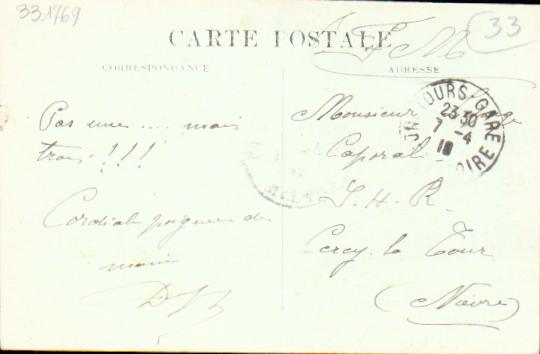 331769
33
CARTE POSTALE
F M
CORRESPONDANCE
ADRESSE
Pas une .... mais
trois !!!
Cordiale poignée de
main
Monsieur
Caporal
S. H. R.
Cercy la Tour
(Nièvre)
TOURS-GARE
23 30
7 -4
LOIRE